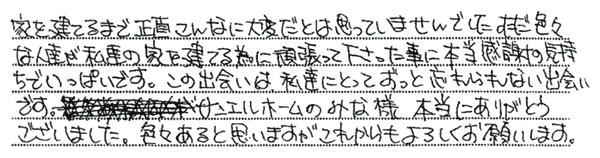 家を建てるまで正直こんなに大変だとは思っていませんでした。まだ色々
な人達が私達の家を建てる為に頑張って下さった事に本当感謝の気持
ちでいっぱいです。この出会いは私達にとってずっと忘れられない出会い
です。サンエルホームのみな様 本当にありがとう
ございました。色々あると思いますがこれからもよろしくお願いします。